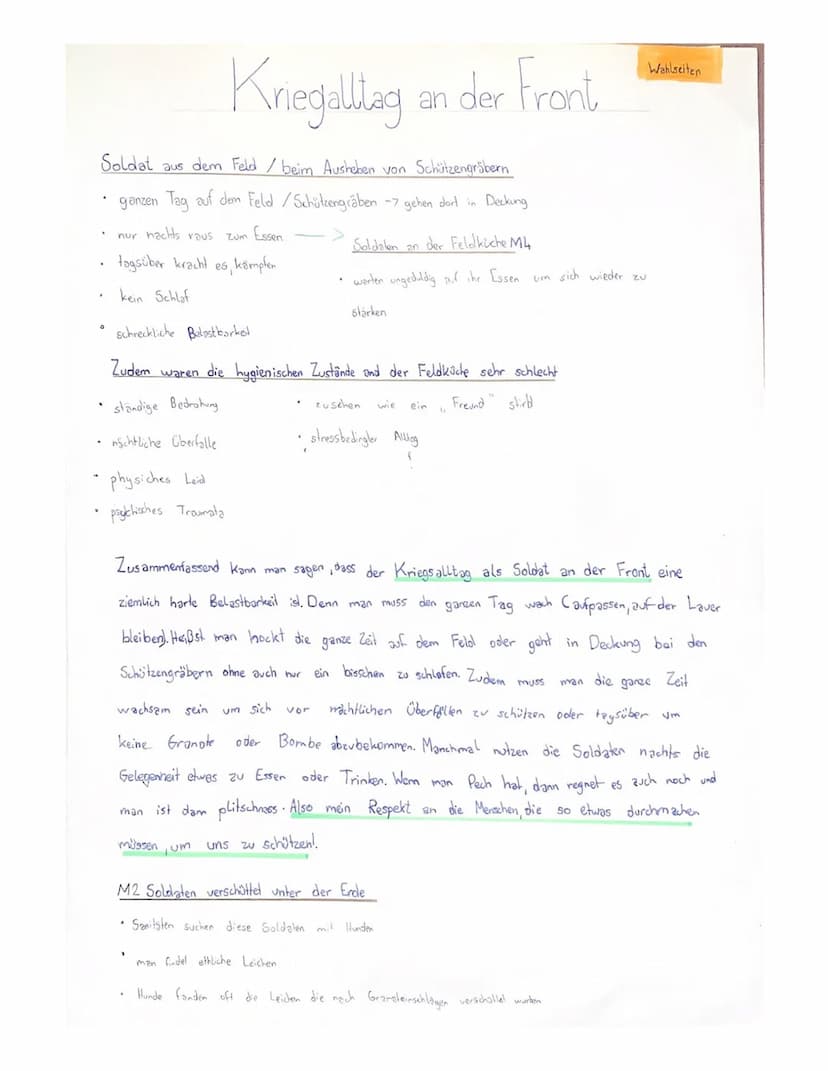 Wahlseiten
Kriegalltag an der Front
Soldat aus dem Feld / beim Ausheben von Schützengräbern
• ganzen Tag auf dem Feld / Schützengräben -> gehen dort in Deckung
• nur nachts raus zum Essen →
• tagsüber kracht es, kämpfen
• kein Schlaf
• schreckliche Belastbarkeit
Soldaten an der Feldküche M4
• warten ungeduldig auf ihr Essen um sich wieder zu
stärken
Zudem waren die hygienischen Zustände und der Feldküche sehr schlecht
• ständige Bedrohung
• nächtliche Überfälle
• physiches Leid
• psychisches Traumata
• zusehen wie ein „Freund" stirbt
• stressbedingter Alltag
Zusammenfassend kann man sagen, dass der Kriegsalltag als Soldat an der Front eine
ziemlich harte Belastbarkeit ist. Denn man muss den ganzen Tag wach (aufpassen, auf der Lauer
bleiben). Heißst man hockt die ganze Zeit auf dem Feld oder geht in Deckung bei den
Schützengräbern ohne auch nur ein bisschen zu schlafen. Zudem muss man die ganze Zeit
wachsam sein um sich vor nächtlichen Überfällen zu schützen oder tagsüber um
keine Granate oder Bombe abzubekommen. Manchmal nutzen die Soldaten nachts die
Gelegenheit etwas zu Essen oder Trinken. Wenn man Pech hat, dann regnet es auch noch und
man ist dann plitschnass. Also mein Respekt an die Menschen, die so etwas durchmachen
müssen, um uns zu schützen!
M2 Soldaten verschüttet unter der Erde
• Sanitäten suchen diese Soldaten mit Hunden
• man findet ethliche Leichen
• Hunde fanden oft die Leichen die nach Granateinschlägen verschüttet wurden